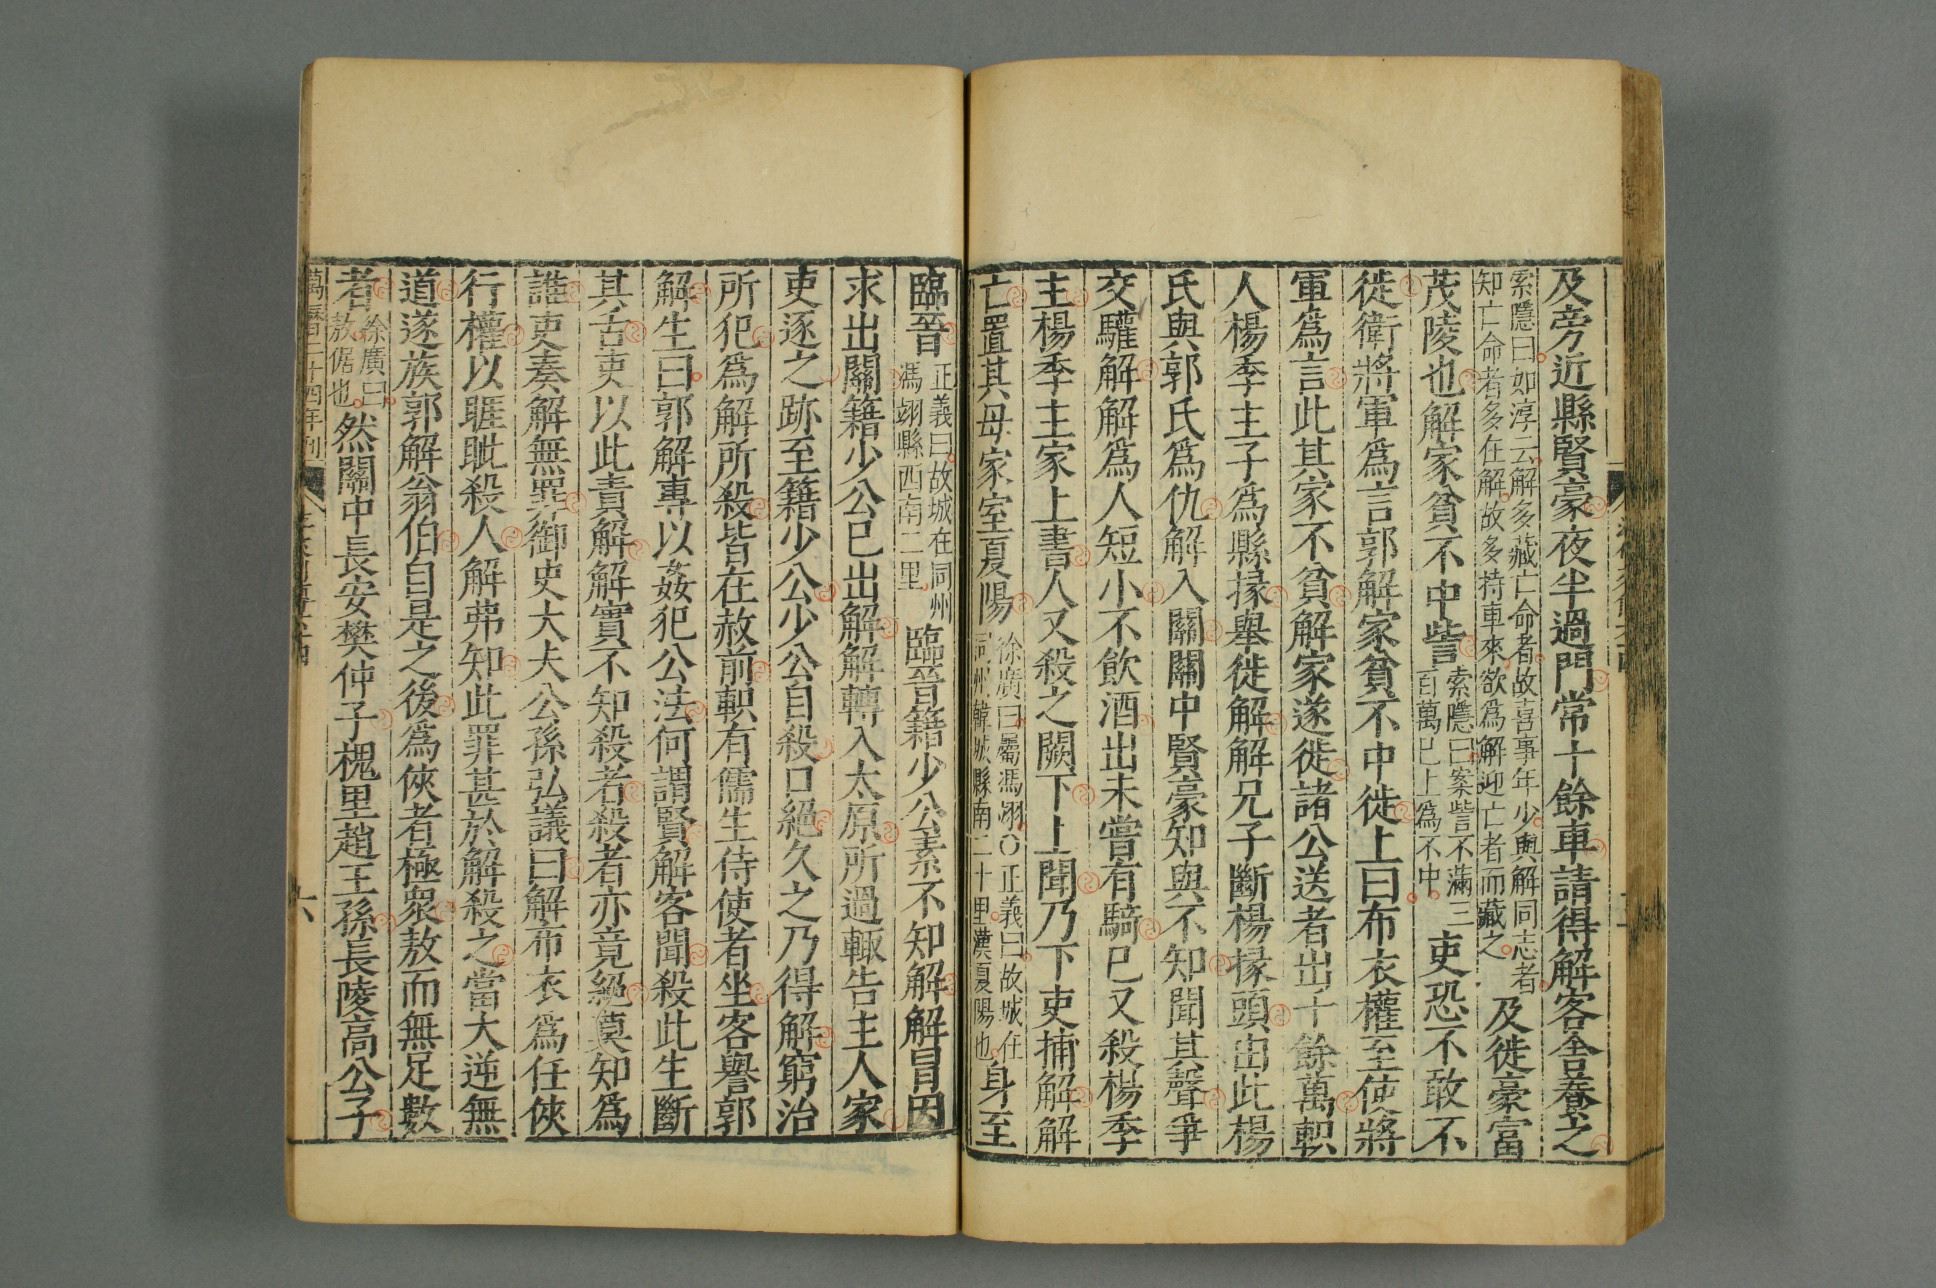 及旁近縣賢豪夜半過門常十餘車請得解客舍養之
索隱曰如淳云解多藏亡命者故喜事年少與解同志者
知亡命者多在解故多持車來欲爲解迎亡者而藏之
及徙豪富
茂陵也解家貧不中訾
索隱曰案訾不滿三
百萬已上爲不中
吏恐不敢不
徙衛將軍爲言郭解家貧不中徙上曰布衣權至使將
軍爲言此其家不貧解家遂徙諸公送者出千餘萬軹
人楊季主子爲縣掾舉徙解解兄子斷楊掾頭由此楊
氏與郭氏爲仇解入關關中賢豪知與不知聞其聲爭
交驩解解爲人短小不飲酒出未嘗有騎已又殺楊季
主楊季主家上書人又殺之闕下上聞乃下吏捕解解
亡置其母家室夏陽
徐廣曰屬馮翊○正義曰故城在
同州韓城縣南二十里漢夏陽也
身至
臨晉
正義曰故城在同州
馮翊縣西南二里
臨晉籍少公素不知解解冒因
求出關籍少公已出解解轉入太原所過輒告主人家
吏逐之跡至籍少公少公自殺口絕久之乃得解窮治
所犯爲解所殺皆在赦前軹有儒生侍使者坐客譽郭
解生曰郭解專以姦犯公法何謂賢解客聞殺此生斷
其舌吏以此責解解實不知殺者殺者亦竟絕莫知爲
誰吏奏解無罪御史大夫公孫弘議曰解布衣爲任俠
行權以睚眦殺人解弗知此罪甚於解殺之當大逆無
道遂族郭解翁伯自是之後爲俠者極衆敖而無足數
者
徐廣曰
敖倨也
然關中長安樊仲子槐里趙王孫長陵高公子
萬曆二十四年刊
六